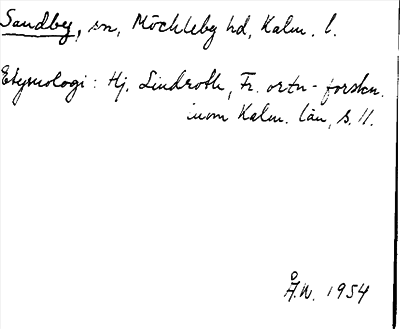 Sandby, sn, Möckleby hd, Kalm. l.
Etymologi: Hj. Lindroth, Fr. ortn-forskn.
inom Kalm. län, s. 11.
Å.W. 1954